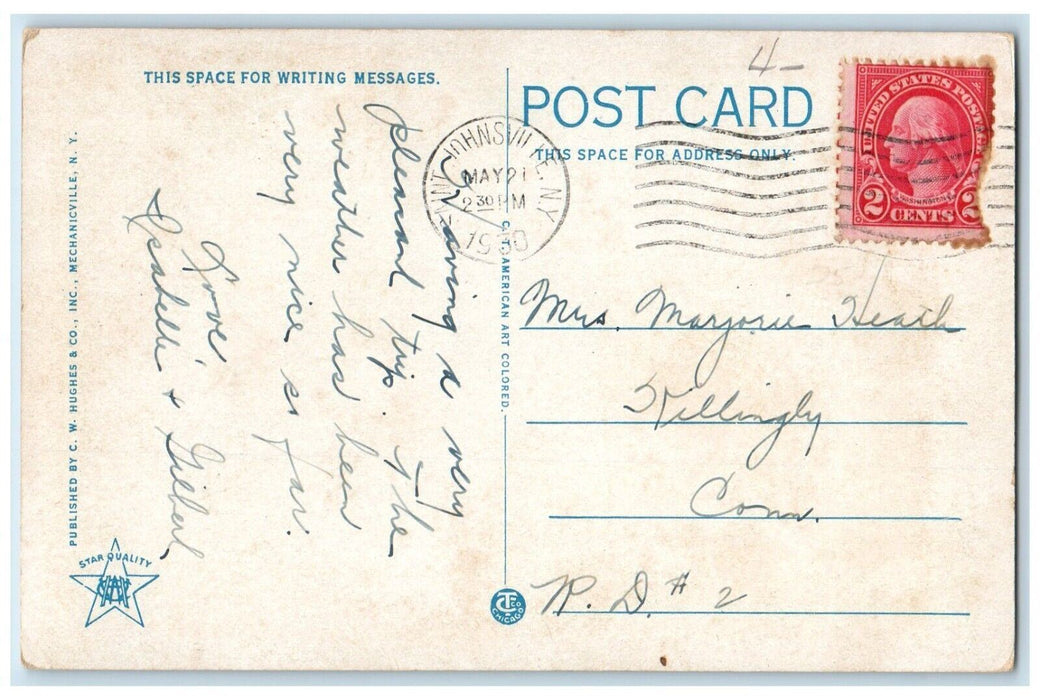 THIS SPACE FOR WRITING MESSAGES.
Having a very
pleasant trip. The
weather has been
very nice so far.
Love
Isabelle + Gilbert
PUBLISHED BY C. W. HUGHES & CO., INC., MECHANICVILLE, N. Y.
STAR QUALITY
C. T. AMERICAN ART COLORED.
4-
POST CARD
THIS SPACE FOR ADDRESS ONLY.
JOHNSVILLE NY
MAY 21
2 30 PM
1930
UNITED STATES POSTAGE
WASHINGTON
2 CENTS 2
Mrs. Marjorie Heath
Killingly
Conn.
R. D. # 2
CT CO
CHICAGO